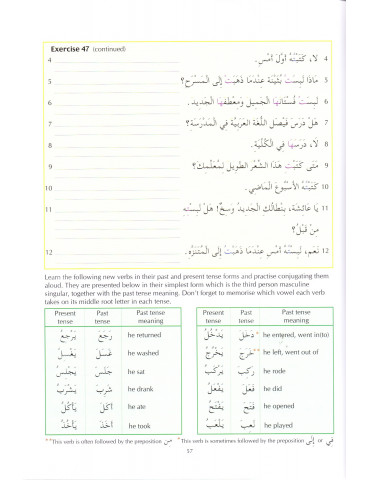 Exercise 47 (continued)
4 لا، كَتَبْتُهُ أَوَّلَ أَمْسِ. 4
5 مَاذَا لَبِسَتْ بُثَيْنَة عِنْدَمَا ذَهَبَتْ إلى المَسْرَح؟ 5
6 لَبِسَت فُسْتَانَهَا الجَمِيل وَمِعْطَفَهَا الجَدِيد. 6
7 هَلْ دَرَسَ فَيْصَل اللُّغَة العَرَبِيَّة فِي المَدْرَسَة؟ 7
8 لا، دَرَسَهَا فِي الكُلِّيَة. 8
9 مَتَى كَتَبْتَ هَذَا الشِّعْر الطَوِيل لِمُعَلِّمِكَ؟ 9
10 كَتَبْتُهُ الأُسْبُوعَ المَاضِي. 10
11 يَا عَائِشَة، بَنْطَالُكِ الجَدِيدُ وَسِخٌ! هَلْ لَبِسْتِهِ 11
مِنْ قَبْلُ؟
12 نَعَم، لَبِسْتُهُ أَمْسِ عِنْدَمَا ذَهَبْتُ إلى المُتَنَزَّه. 12
Learn the following new verbs in their past and present tense forms and practise conjugating them
aloud. They are presented below in their simplest form which is the third person masculine
singular, together with the past tense meaning. Don't forget to memorise which vowel each verb
takes on its middle root letter in each tense.
Present tense Past tense Past tense meaning
يَرْجِعُ رَجَعَ he returned
يَغْسِلُ غَسَلَ he washed
يَجْلِسُ جَلَسَ he sat
يَشْرَبُ شَرِبَ he drank
يَأْكُلُ أَكَلَ he ate
يَأْخُذُ أَخَذَ he took
Present tense Past tense Past tense meaning
يَدْخُلُ دَخَلَ* he entered, went in(to)
يَخْرُجُ خَرَجَ** he left, went out of
يَرْكَبُ رَكِبَ he rode
يَفْعَلُ فَعَلَ he did
يَفْتَحُ فَتَحَ he opened
يَلْعَبُ لَعِبَ he played
**This verb is often followed by the preposition مِن *This verb is sometimes followed by the preposition إلى or فِي
57